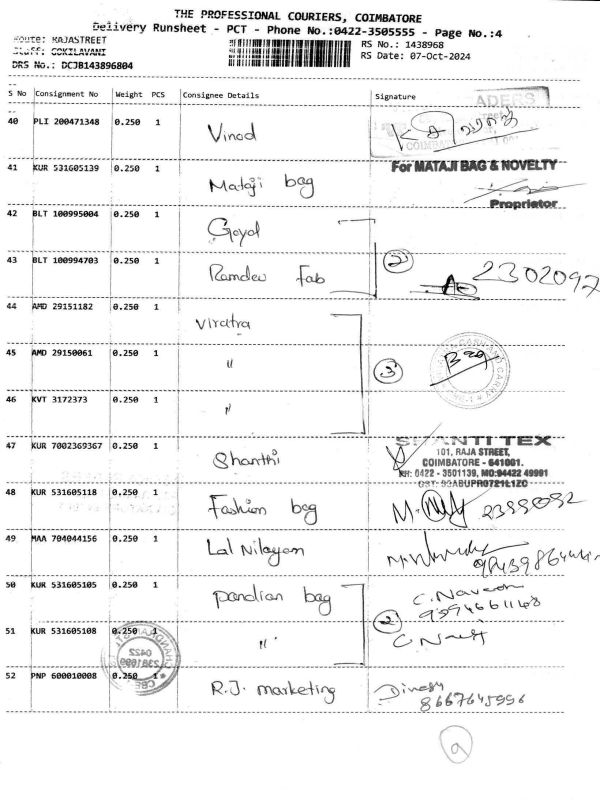 THE PROFESSIONAL COURIERS, COIMBATORE
Delivery Runsheet - PCT - Phone No.:0422-3505555 - Page No.:4
Route: RAJASTREET
Staff: GOKILAVANI
DRS No.: DCJB143896804
RS No.: 1438968
RS Date: 07-Oct-2024
S No Consignment No Weight PCS Consignee Details Signature
40 PLI 200471348 0.250 1 Vinod
41 KUR 531605139 0.250 1 Mataji bag For MATAJI BAG & NOVELTY
Proprietor
42 BLT 100995004 0.250 1 Goyal
43 BLT 100994703 0.250 1 Ramdev Fab 2 2302097
44 AMD 29151182 0.250 1 Viratra
45 AMD 29150061 0.250 1 " 3
46 KVT 3172373 0.250 1 "
47 KUR 7002369367 0.250 1 Shanthi SHANTI TEX
101, RAJA STREET,
COIMBATORE - 641001.
PH: 0422 - 3501139, MO:94422 49991
48 KUR 531605118 0.250 1 Fashion bag
49 MAA 704044156 0.250 1 Lal Nilayam
50 KUR 531605105 0.250 1 Pandian bag C. Naveen
2
51 KUR 531605108 0.250 1 "
52 PNP 600010008 0.250 1 R.J. marketing Dinesh
8667645996
9